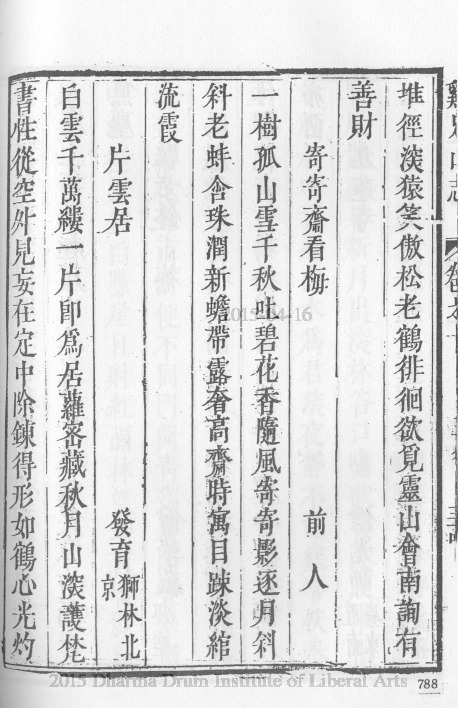 雞足山志 卷之十
堆徑深猿笑傲松老鶴徘徊欲覓靈山會南詢有
善財
寄寄齋看梅 前人
一樹孤山雪千秋吐碧花香隨風寄寄影逐月斜
斜老蚌含珠潤新蟾帶露奢高齋時寓目踈淡綰
流霞
片雲居 發育 獅林北京
白雲千萬縷一片卽爲居蘿密藏秋月山深護梵
書性從空外見妄在定中除鍊得形如鶴心光灼
2015-04-16
2015 Dharma Drum Institute of Liberal Arts
788